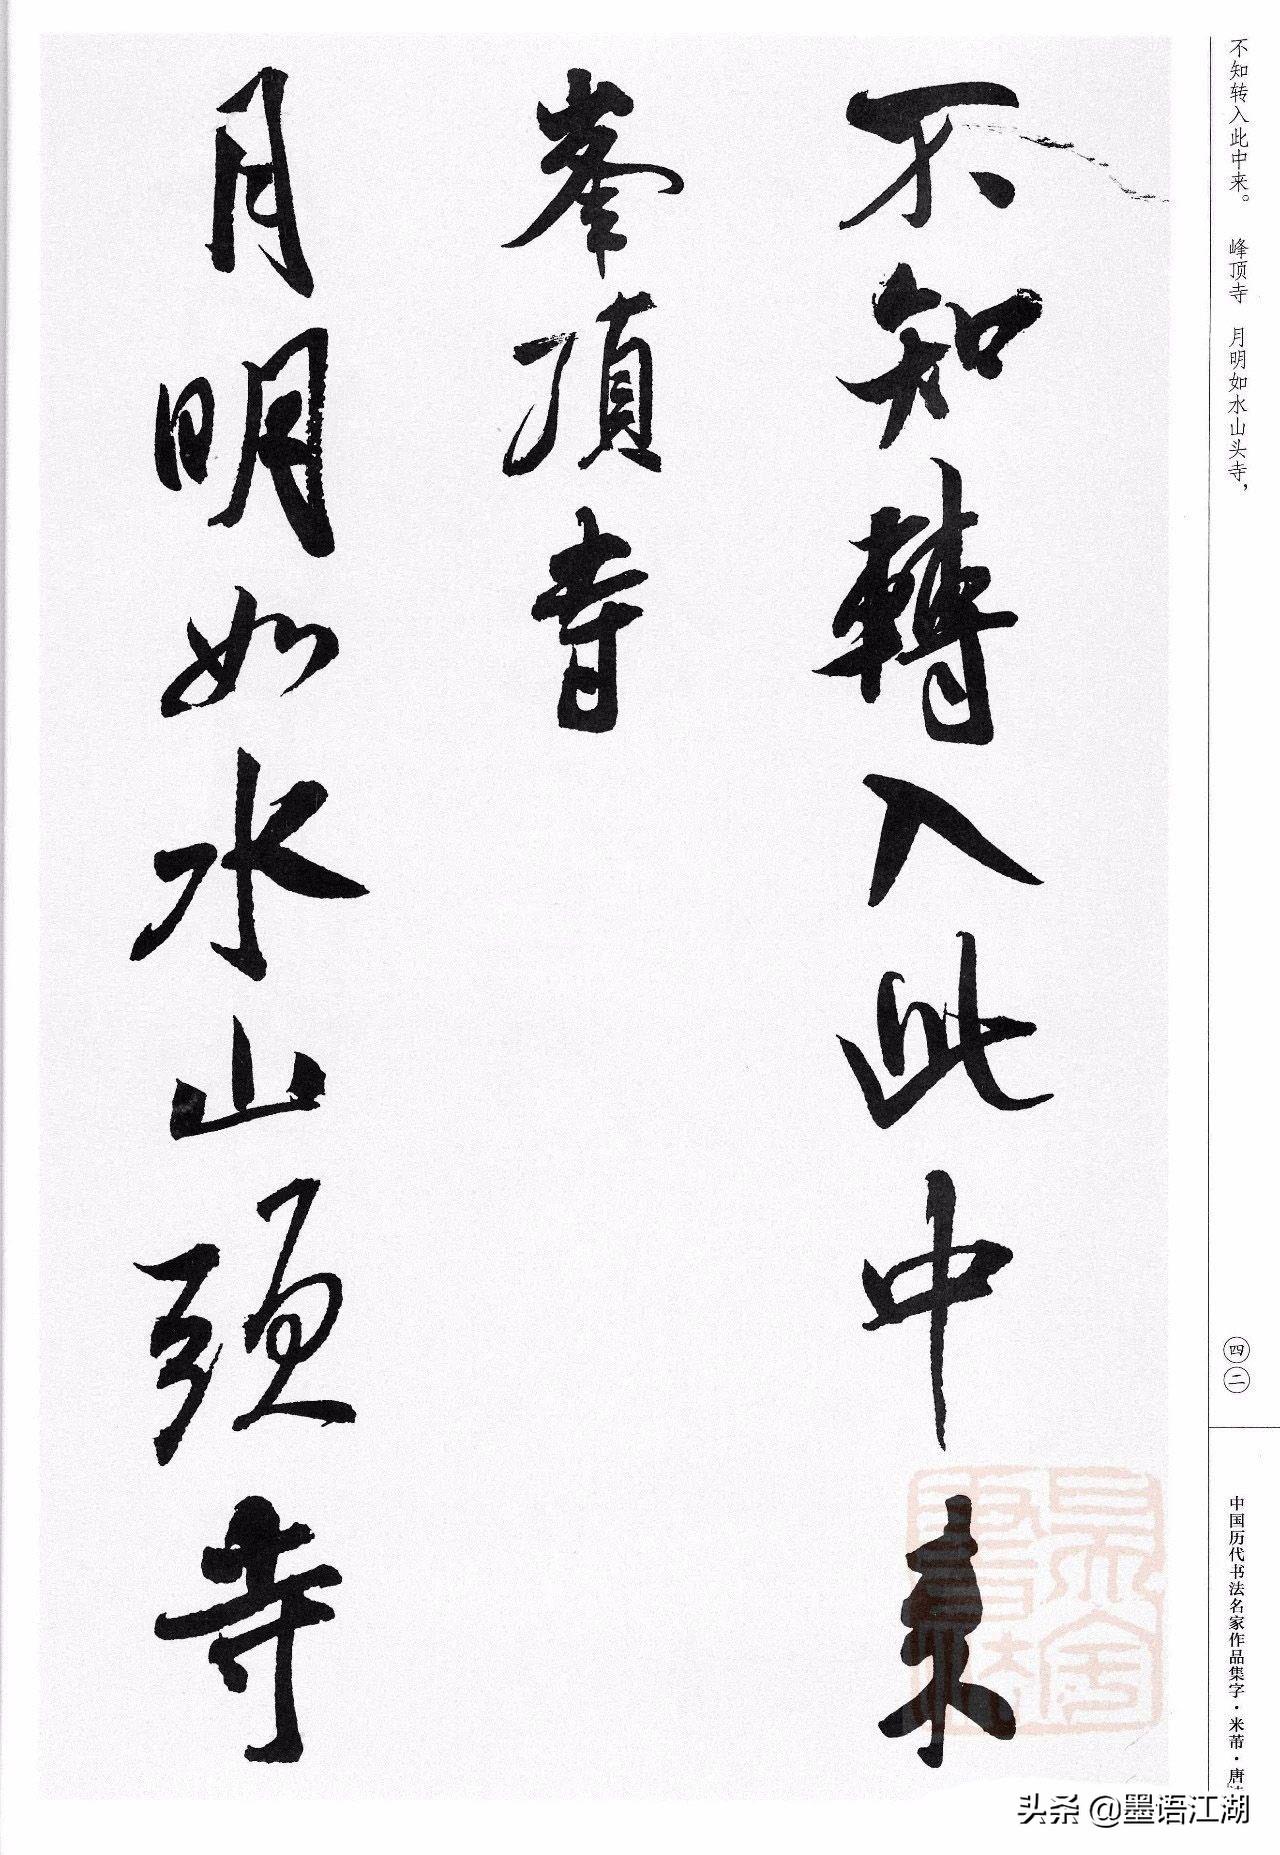 不知转入此中来。 峰顶寺 月明如水山头寺，
不知轉入此中来
峯頂寺
月明如水山頭寺
四二
中国历代书法名家作品集字·米芾·唐
头条 @墨语江湖